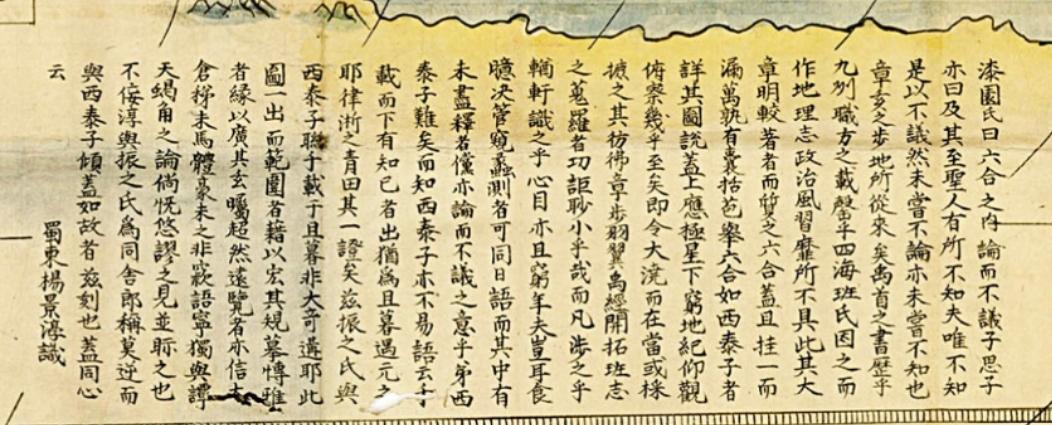 漆園氏曰六合之內論而不議子思子
亦曰及其至聖人有所不知夫唯不知
是以不議然未嘗不論亦未嘗不知也
章亥之步地所從來矣禹首之書歷乎
九州職方之載罄乎四海班氏因之而
作地理志政治風習靡所不具此其大
章明較著者而質之六合蓋且挂一而
漏萬孰有囊括苞舉六合如西泰子者
詳其圖說蓋上應極星下窮地紀仰觀
俯察幾乎至矣即令大撓而在當或採
摭之其彷彿章步羽翼禹經開拓班志
之蒐羅者功詎眇小乎哉而凡涉之乎
輶軒識之乎心目亦且窮年夫豈耳食
臆決管窺蠡測者可同日語而其中有
未盡釋者儻亦論而不議之意乎第西
泰子難矣而知西泰子亦不易語云千
載而下有知己者出猶為旦暮遇元之
耶律浙之青田其一證矣茲振之氏與
西泰子聯千載于旦暮非大奇遘耶此
圖一出而範圍者藉以宏其規摹博雅
者緣以廣其玄矚超然遠覽者亦信太
倉稊米馬體豪末之非窾語寧獨與譚
天蝸角之論倘怳悠謬之見並眎之也
不佞淳與振之氏為同舍郎稱莫逆而
與西泰子傾蓋如故者茲刻也蓋同心
云
蜀東楊景淳識